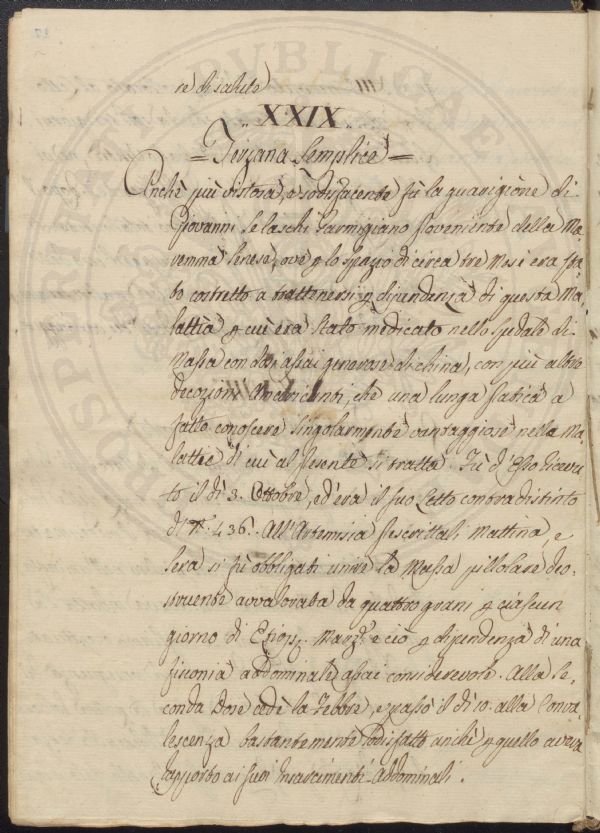 re di salute) IIII
„ XXIX „
= Terzana Semplice =
Anche più vistosa, e sodisfacente fù la guarigione di
Giovanni Selaschi Parmigiano proveniente della Ma,,
remma Senese, ove p lo spazio di circa tre Mesi era sta,,
to costretto a trattenersi p dipendenza di questa Ma,,
lattia p cui era stato medicato nello Spedale di
Massa con dosi assai generose di china, con più altre
decozioni, che una lunga pratica à
fatto conoscere singolarmente vantaggiose nelle Ma,,
lattie di cui al presente si tratta. Fù d'Esso ricevu,,
to il dì 3. Ottobre, ed era il suo Letto contradistinto
di N.° 436. All'Artemisia prescrittali Mattina, e
Sera si fù obbligati unire la Massa pillolare deo,,
struente avvalorata da quattro grani p ciascun
giorno di Etiop. Marz.e e ciò p dipendenza di una
fisconia addominale assai considerevole. Alla Se,,
conda Dose cedè la Febbre, e passò il dì 10. alla Conva,,
lescenza bastantemente sodisfatto anche p quello aveva
rapporto ai suoi Addominali.